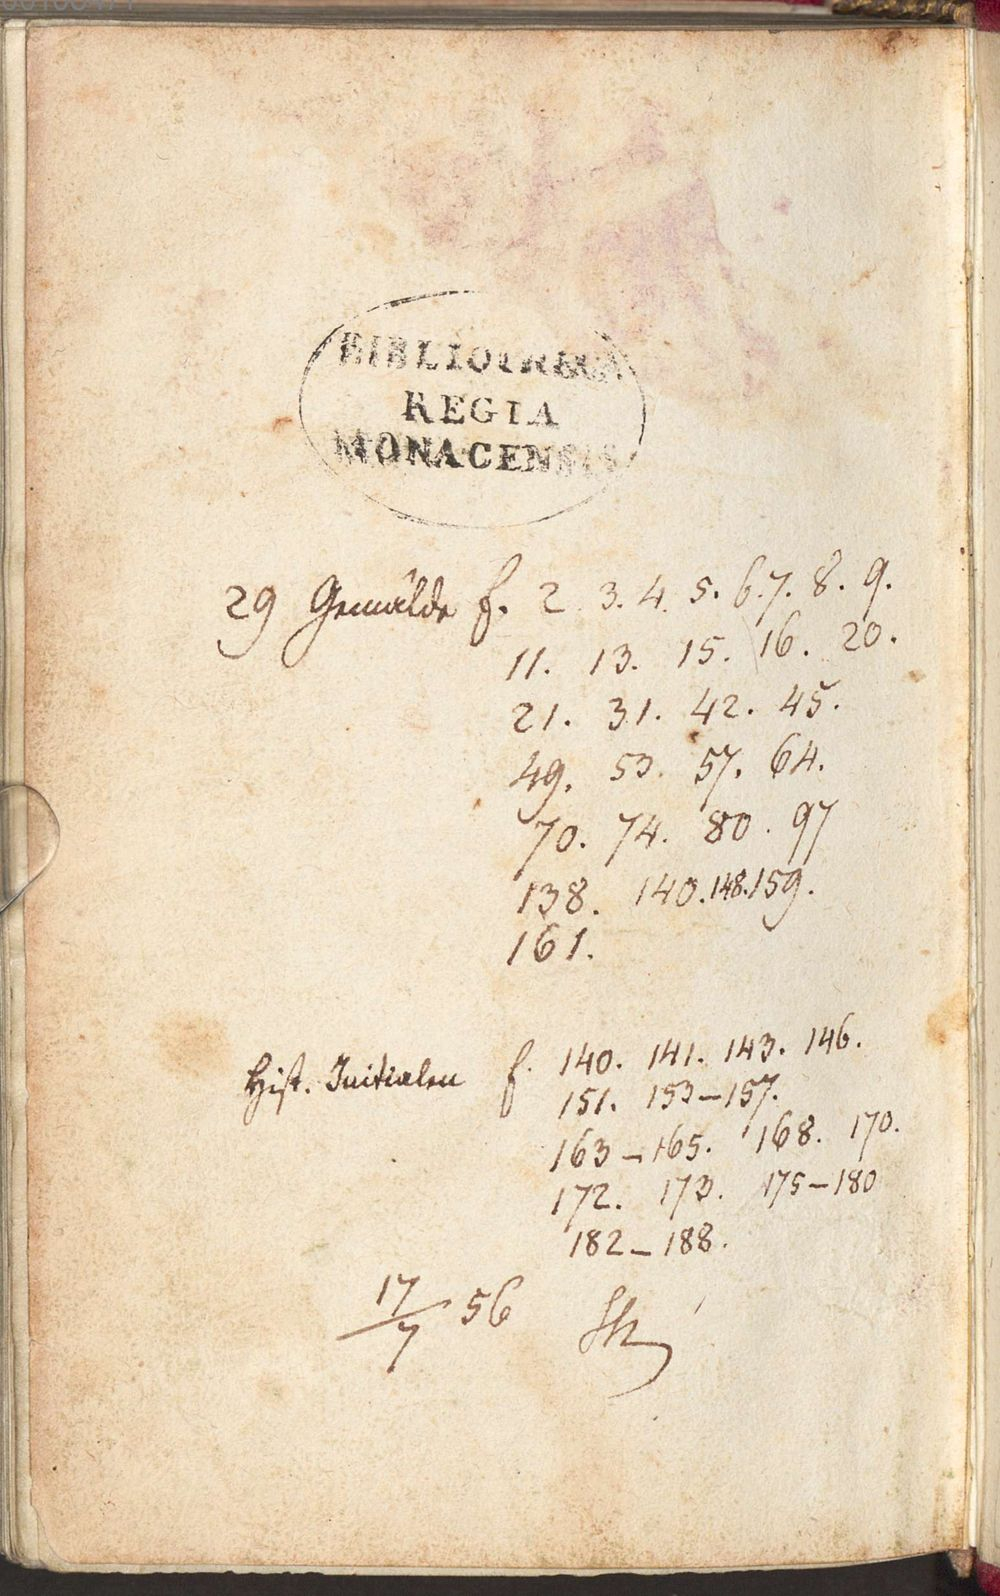 BIBLIOTHECA
REGIA
MONACENSIS
29 Gemälde f. 2. 3. 4. 5. 6. 7. 8. 9.
11. 13. 15. 16. 20.
21. 31. 42. 45.
49. 53. 57. 64.
70. 74. 80. 97
138. 140. 148. 159.
161.
Hist. Initialen f. 140. 141. 143. 146.
151. 153-157.
163-165. 168. 170.
172. 173. 175-180
182-188.
17/7 56